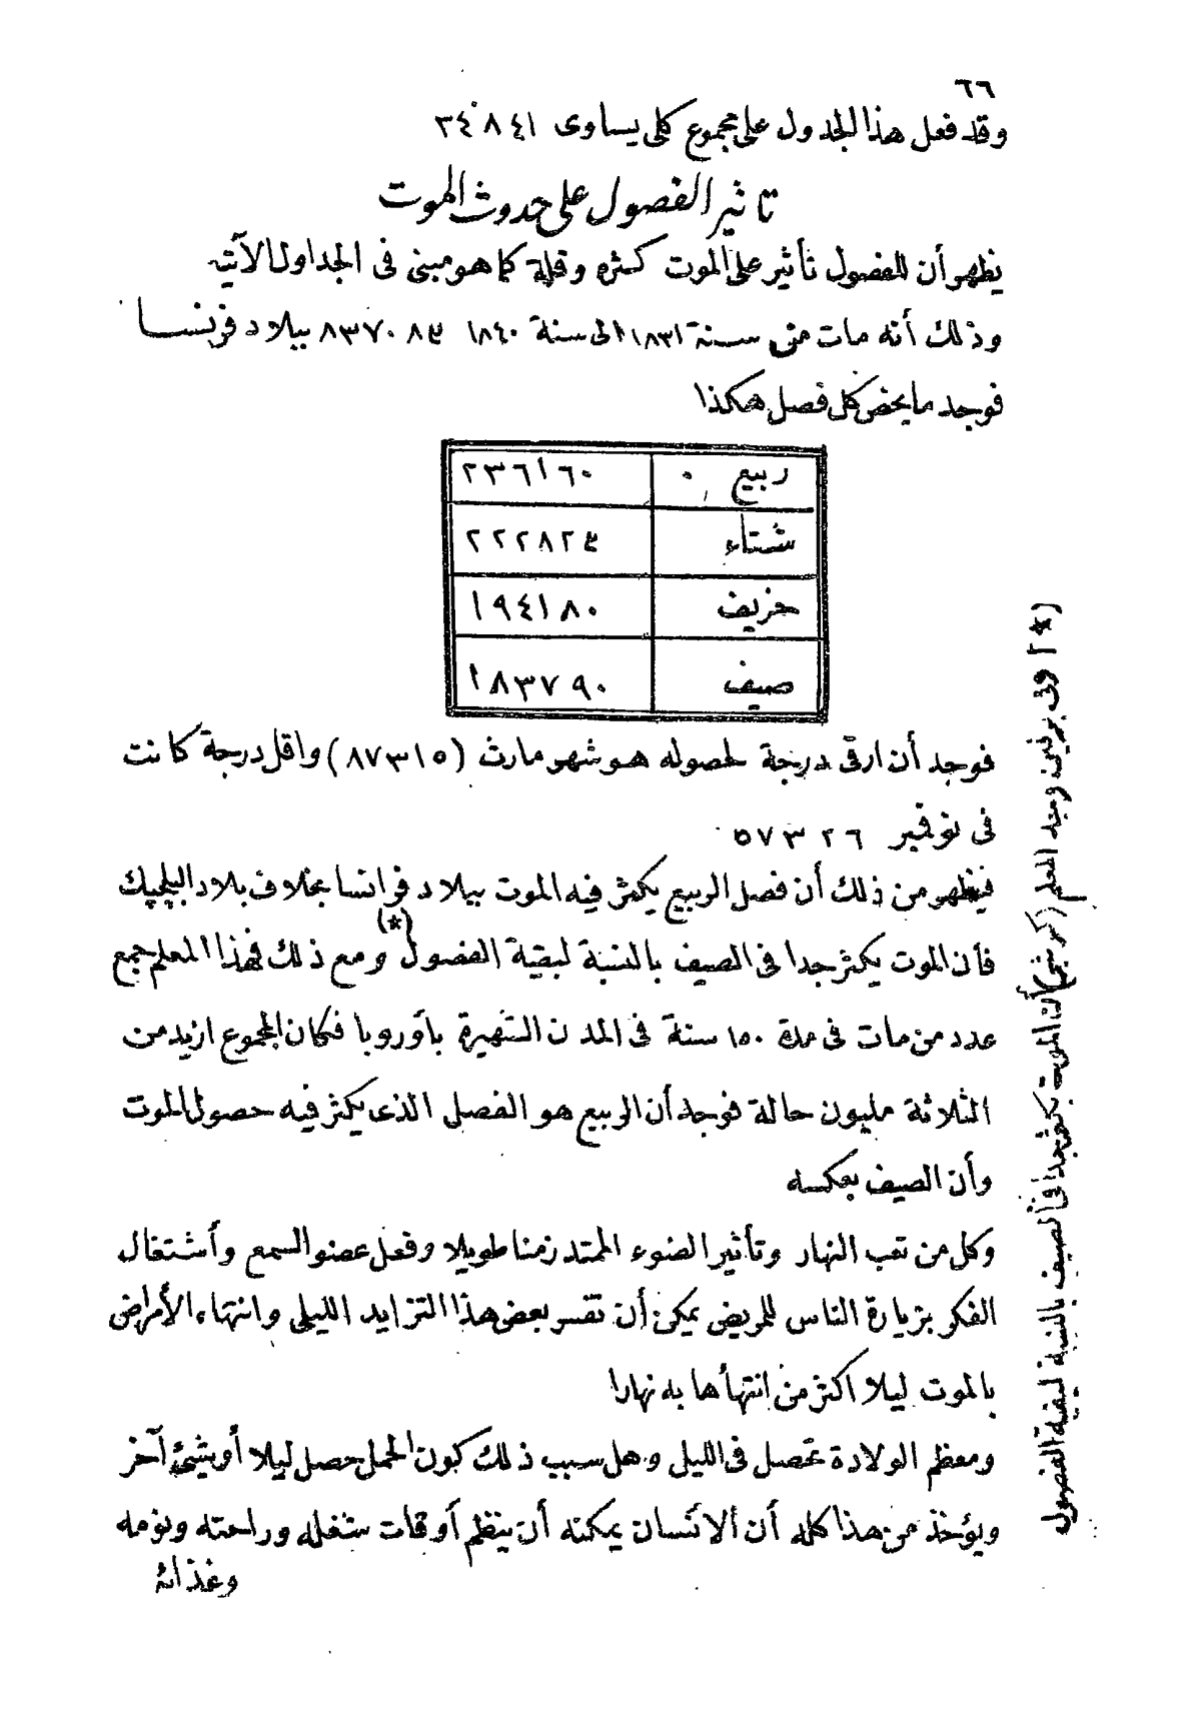 ٦٦
وقد فعل هذا الجدول على مجموع كلى يساوى ٣٤٨٤١
تاثير الفصول على حدوث الموت
يظهر أن للفصول تأثير على الموت كثره وقلة كما هو مبنى فى الجداول الآتيه
وذلك أنه مات من سنة ١٨٣١ الى سنة ١٨٤٠ ببلاد فرنسا
فوجد ما يخص كل فصل هكذا
ربيع ٢٣٦١٦٠
شتاء ٢٢٢٨٢٤
خريف ١٩٤١٨٠
صيف ١٨٣٧٩٠
فوجد أن ارقى درجة لحصوله هو شهر مارث (٨٧٣١٥) واقل درجة كانت
فى نوفمبر ٥٧٣٢٦
فيظهر من ذلك أن فصل الربيع يكثر فيه الموت ببلاد فرانسا بخلاف بلاد البلچيك
فأن الموت يكثر جدا فى الصيف بالنسبة لبقية الفصول (*) ومع ذلك فهذا المعلم جمع
عدد من مات فى مدة ١٥٠ سنة فى المدن الشهيرة بأوروبا فكان المجموع ازيد من
الثلاثة مليون حالة فوجد أن الربيع هو الفصل الذى يكثر فيه حصول الموت
وأن الصيف بعكسه
وكل من تعب النهار وتأثير الضوء الممتد زمنا طويلا وفعل عضو السمع وأشتغال
الفكر بزيارة الناس للمريض يمكن أن تفسر بعض هذا التزايد الليلى وانتهاء الأمراض
بالموت ليلا اكثر من انتهأها به نهارا
ومعظم الولادة تحصل فى الليل وهل سبب ذلك كون الحمل حصل ليلا أو بشئ آخر
ويؤخذ من هذا كله أن ألانسان يمكنه أن ينظم أوقات شغله وراحته ونومه
وغذائه
(*) وفى وجد المعلم أن الموت يكثر جدا فى الصيف بالنسبة لبقية الفصول